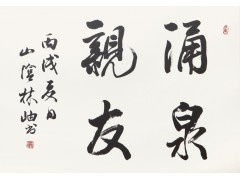 涌泉
親友
丙戌夏日
山陰林岫书